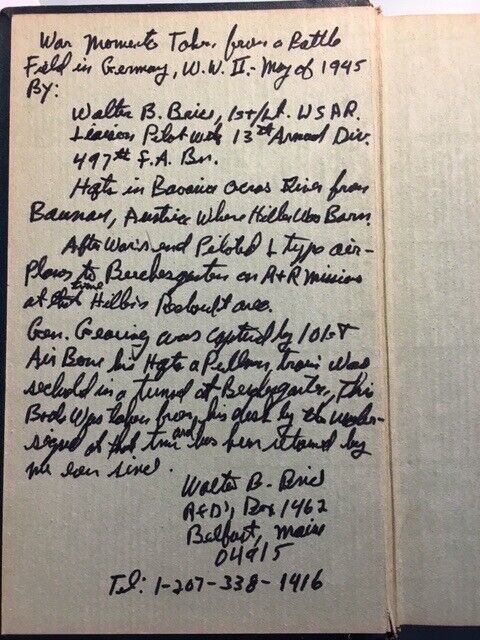 War Momento Taken from a Battle
Field in Germany, W.W. II.- May of 1945
By:
Walter B. 1st/Lt. USAR.
Liaison Pilot with 13th Armored Div.
497th F.A. Bn.
Hqts in Bavaria across River from
Baunan, Austria Where Hitler Was Born.
After War's end Piloted L type air-
planes to on A+R missions
at that time Hitler's Redoubt area.
Gen. Goering was captured by 101st
Air Borne his Hqts a Pullman train was
in a tunnel at This
Book Was taken from his desk by the under-
signed at that time and has been retained by
me ever since.
Walter B.
Box 1462
Belfast, Maine
04915
Tel: 1-207-338-1416